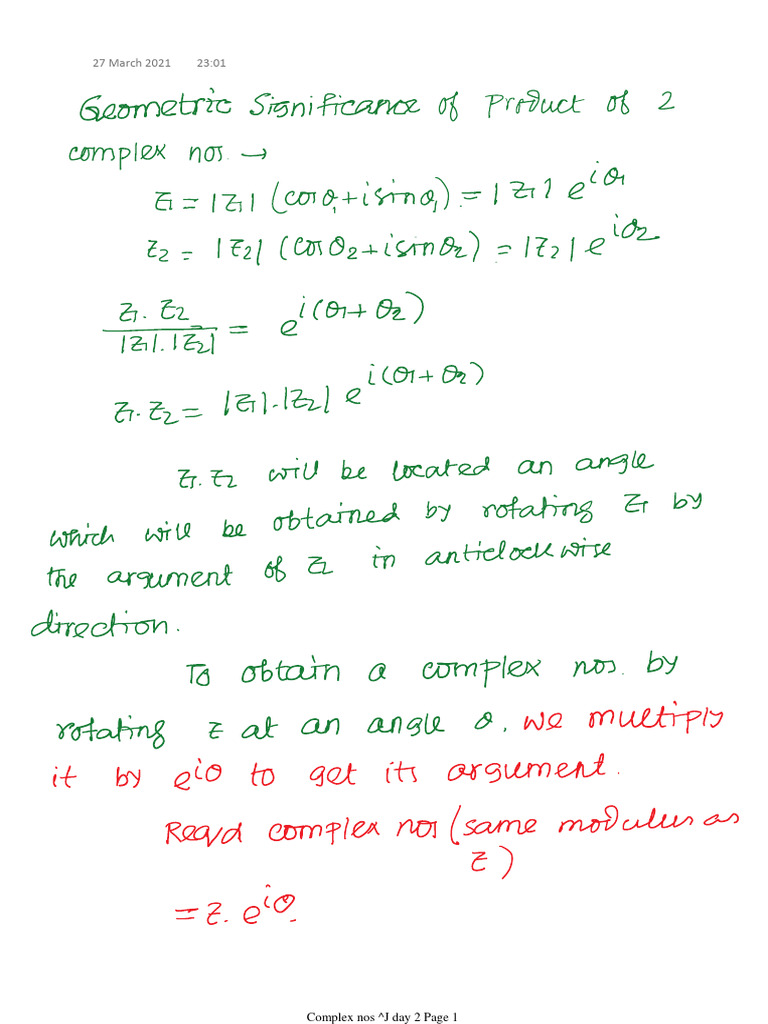 27 March 2021 23:01
Geometric Significance of Product of 2
complex nos. →
z₁ = |z₁| (cosθ₁+isinθ₁) = |z₁| e^{iθ₁}
z₂ = |z₂| (cosθ₂+isinθ₂) = |z₂| e^{iθ₂}
z₁. z₂ / |z₁|.|z₂| = e^{i(θ₁+θ₂)}
z₁.z₂ = |z₁|.|z₂| e^{i(θ₁+θ₂)}
z₁.z₂ will be located an angle
which will be obtained by rotating z₁ by
the argument of z₂ in anticlockwise
direction.
To obtain a complex nos. by
rotating z at an angle θ, we multiply
it by e^{iθ} to get its argument.
Reqd complex nos (same modulus as
z)
= z. e^{iθ}.
Complex nos ^J day 2 Page 1